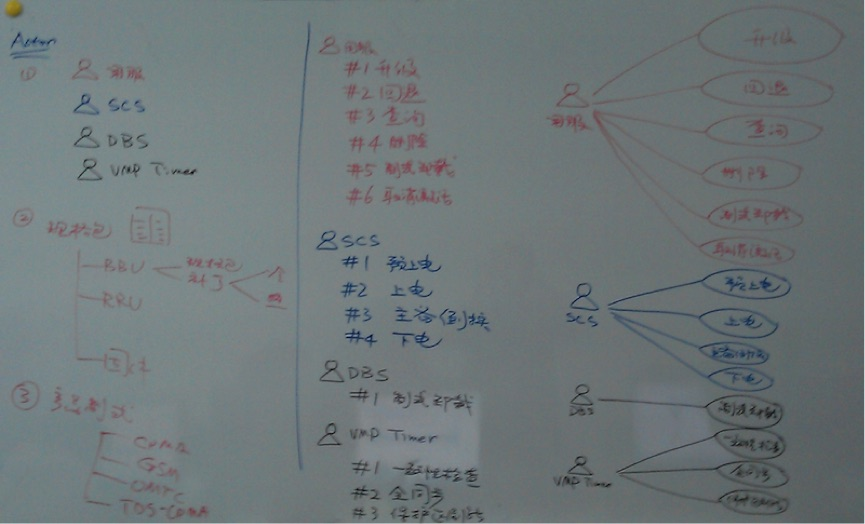 Action
① 用服
SCS
DBS
VMP Timer
② 规格包
BBU
RRU
③ 多制式
CDMA
GSM
TDS-CDMA
用服
#1 升级
#2 回退
#3 查询
#4 删除
#5 制式卸载
#6 取消激活
SCS
#1 预上电
#2 上电
#3 主备倒换
#4 下电
DBS
#1 制式卸载
VMP Timer
#1 一致性检查
#2 全同步
#3
用服
升级
回退
查询
删除
制式卸载
取消激活
SCS
预上电
上电
主备倒换
下电
DBS
制式卸载
VMP Timer
一致性检查
全同步